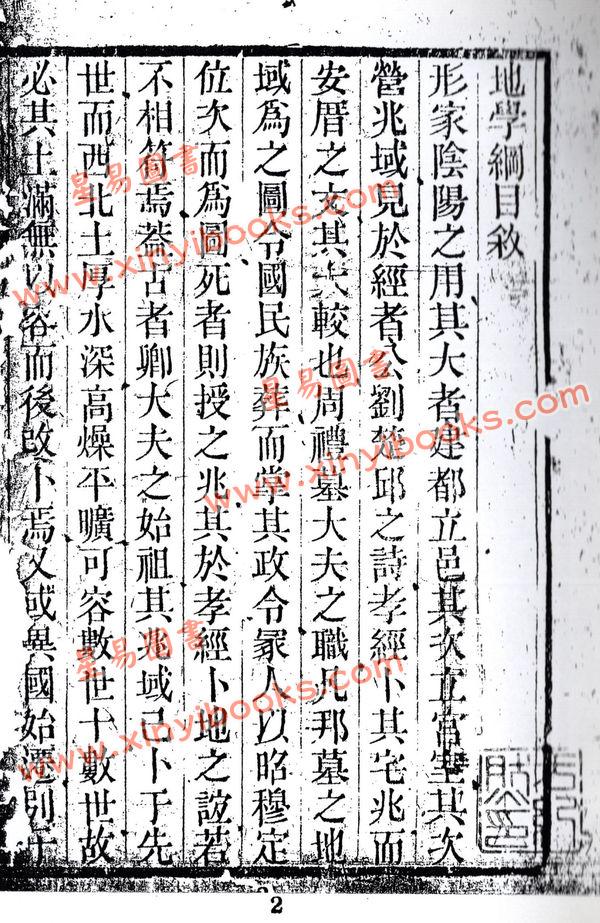 地學綱目敘
形家陰陽之用其大者建都立邑其次立宮室其次
營兆域見於經者公劉楚邱之詩孝經卜其宅兆而
安厝之文其大較也周禮墓大夫之職凡邦墓之地
域為之圖令國民族葬而掌其政令冢人以昭穆定
位次而為圖死者則授之兆其於孝經卜地之誼若
不相符焉葢古者卿大夫之始祖其兆域已卜于先
世而西北土厚水深高燥平曠可容數世十數世故
必其土滿無以容而後改卜焉又或異國始遷別于
星易圖書
www.xinyibooks.com
星易圖書
www.xinyibooks.com
星易圖書
www.xinyibooks.com
2